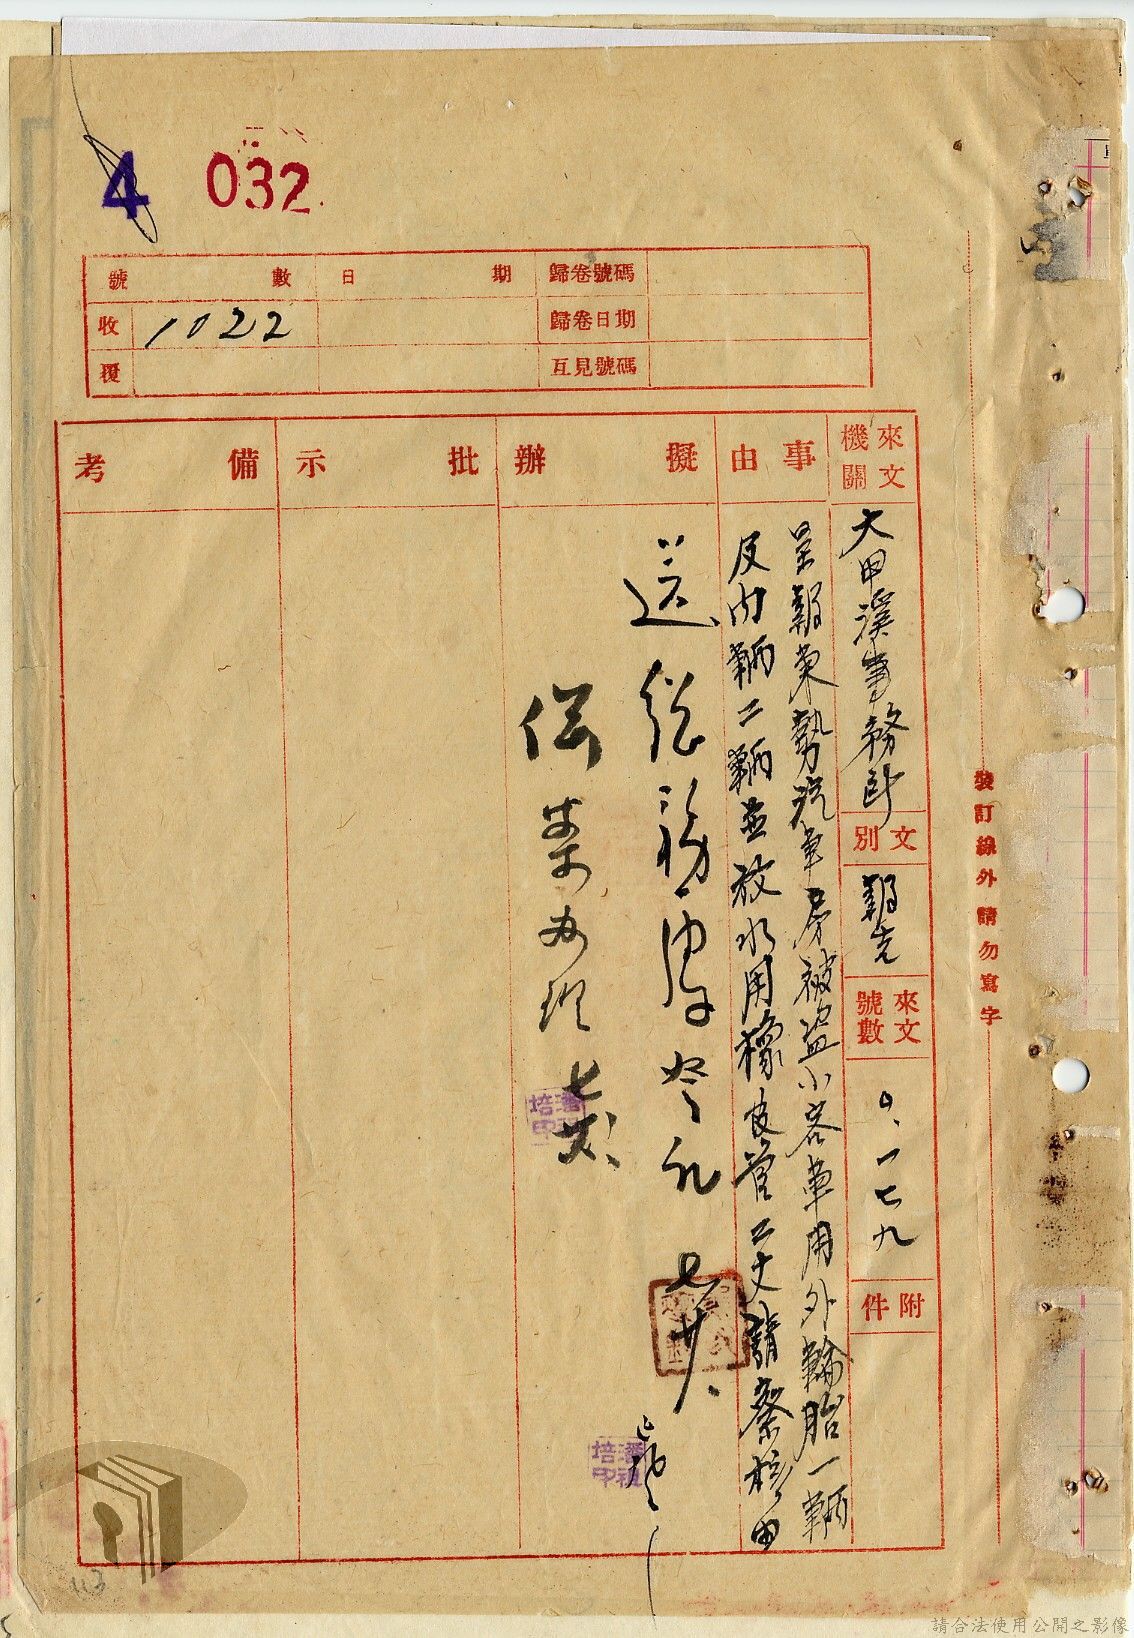 4 032
號數 日期 歸卷號碼
收 1022 歸卷日期
覆 互見號碼
來文機關
大甲溪事務所
文別
報告
來文號數
0.一七九
附件
事由
呈報東勢汽車房被盜小客車用外輪胎一輛
及內輛二輛並放水用橡皮管二丈請察核由
擬辦
送總務處
七廿八
批示
備考
裝訂線外請勿寫字
潘祖培印
潘祖培印
113
請合法使用公開之影像